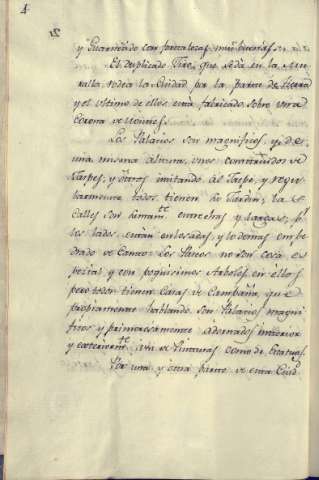 4
y Guarnecido con fortalezas mui buenas.
El duplicado Giro, que se da en la Mu-
ralla, rodea la Ciudad por la parte de tierra
y el ultimo de ellos esta fabricado sobre una
Corona de montes.
Los Palacios son magnificos, y de
una misma altura, unos construidos de
Jaspes, y otros imitando al Jaspe, y regu-
larmente todos tienen su Jardin; las
Calles son sumam.te estrechas y largas; p.r
los lados estan enlosadas, y lo demas em pe
drado de Canto: Los Paseos no son cosa es
pecial, y con poquisimos Arboles en ellos
pero todos tienen Casas de Campaña, que
propiamente hablando son Palacios magni
ficos y primorosamente adornados interior
y exteriorm.te asi de Pinturas como de Estatuas.
Por una y otra parte de esta Ciud.